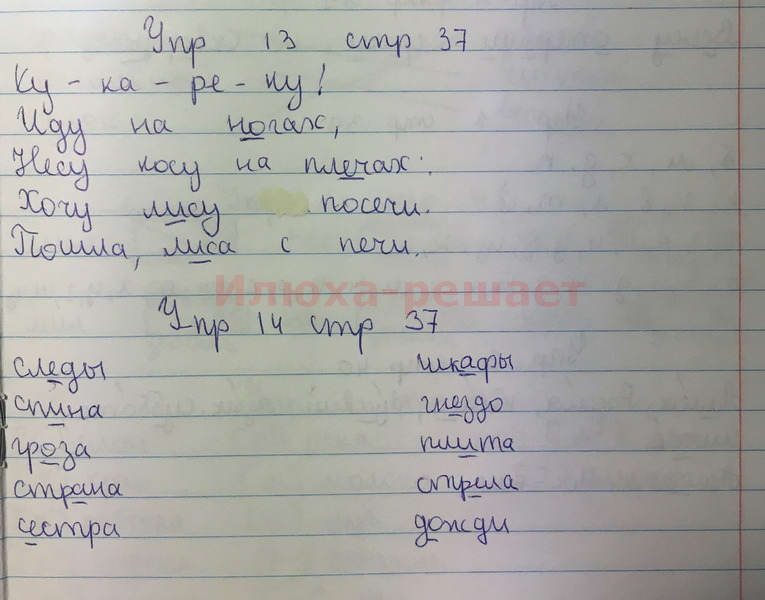 Упр 13 стр 37
Ку - ка - ре - ку!
Иду на ногах,
Несу косу на плечах:
Хочу лису посечи.
Пошла, лиса с печи.
Илюха-решает
Упр 14 стр 37
следы шкафы
спина гнездо
гроза плита
страна стрела
сестра дожди